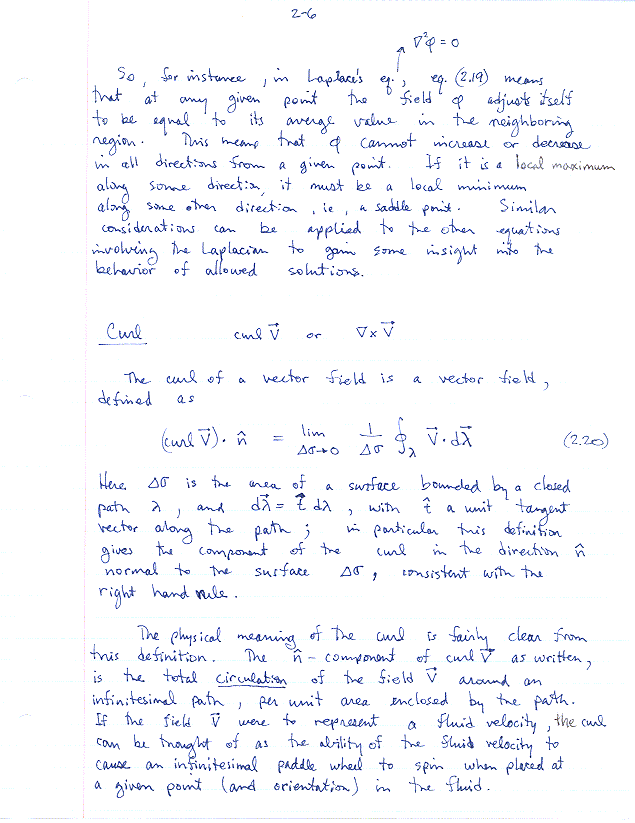 2-6
∇²φ = 0
So, for instance, in Laplace's eq., eq. (2.19) means
that at any given point the field φ adjusts itself
to be equal to its average value in the neighboring
region. This means that φ cannot increase or decrease
in all directions from a given point. If it is a local maximum
along some direction, it must be a local minimum
along some other direction, ie, a saddle point. Similar
considerations can be applied to the other equations
involving the Laplacian to gain some insight into the
behavior of allowed solutions.
Curl curl V⃗ or ∇×V⃗
The curl of a vector field is a vector field,
defined as
(curl V⃗)·n̂ = lim_{Δσ→0} 1/Δσ ∮_λ V⃗·dλ⃗ (2.20)
Here Δσ is the area of a surface bounded by a closed
path λ, and dλ⃗ = t̂ dλ, with t̂ a unit tangent
vector along the path; in particular this definition
gives the component of the curl in the direction n̂
normal to the surface Δσ, consistent with the
right hand rule.
The physical meaning of the curl is fairly clear from
this definition. The n̂-component of curl V⃗ as written,
is the total circulation of the field V⃗ around an
infinitesimal path, per unit area enclosed by the path.
If the field V⃗ were to represent a fluid velocity, the curl
can be thought of as the ability of the fluid velocity to
cause an infinitesimal paddle wheel to spin when placed at
a given point (and orientation) in the fluid.